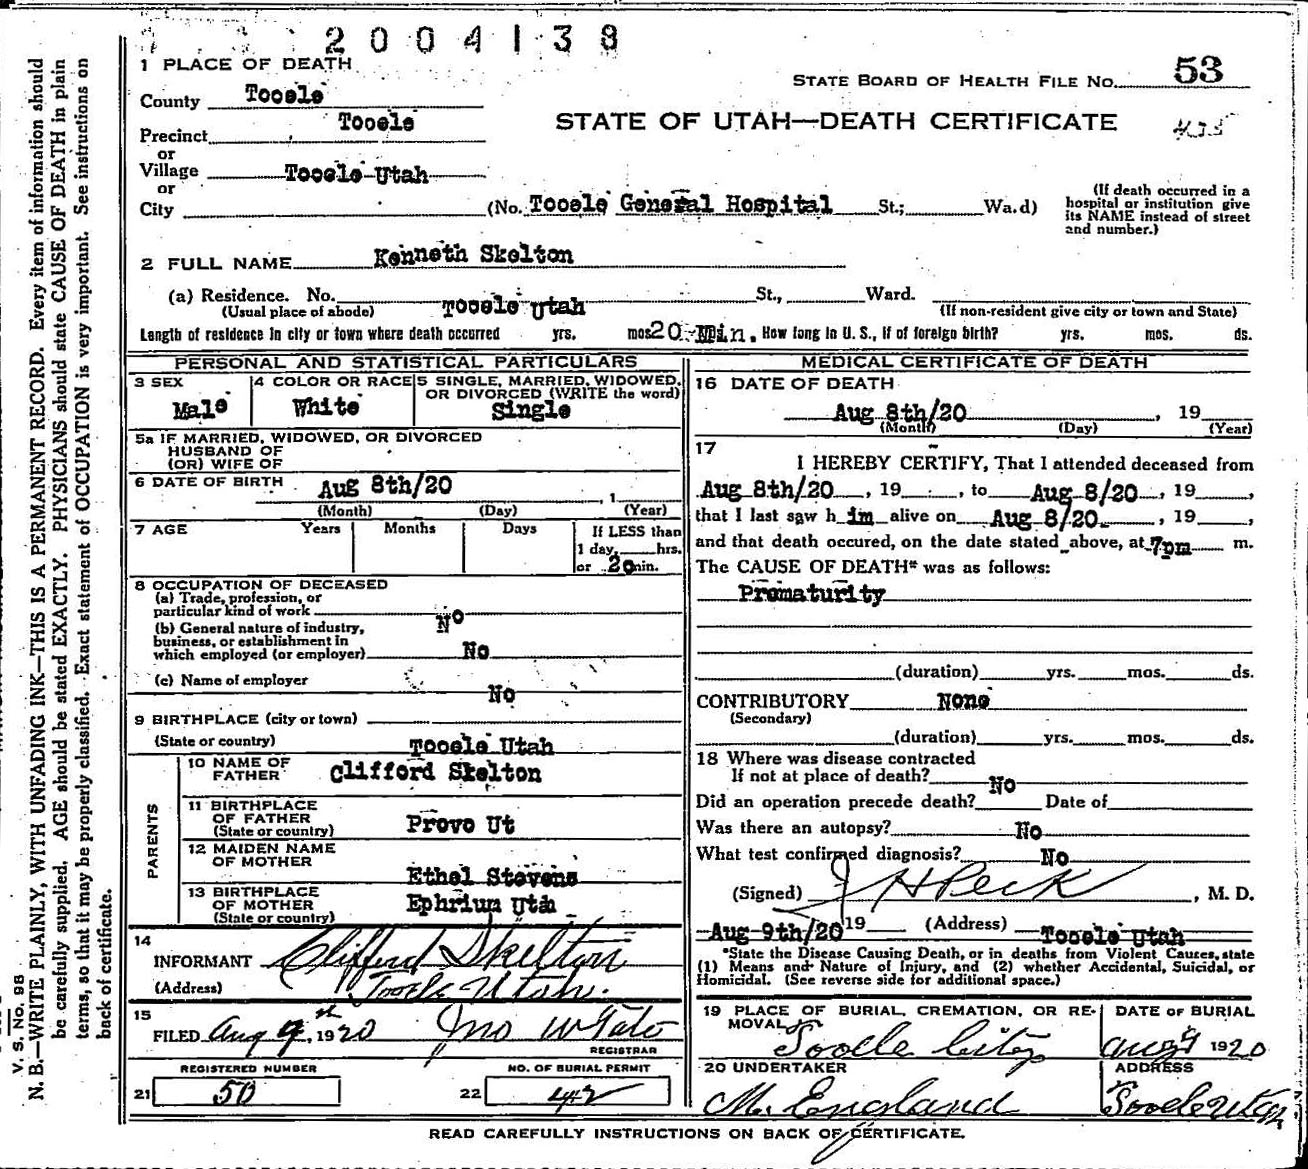 2004138
1 PLACE OF DEATH
STATE BOARD OF HEALTH FILE NO. 53
County Tooele
STATE OF UTAH—DEATH CERTIFICATE
Precinct Tooele
or
Village Tooele Utah
or
City (No. Tooele General Hospital St.; Wa.d)
(If death occurred in a
hospital or institution give
its NAME instead of street
and number.)
2 FULL NAME Kenneth Skelton
(a) Residence. No. Tooele Utah St., Ward.
(Usual place of abode) (If non-resident give city or town and State)
Length of residence in city or town where death occurred yrs. mos. 20 Min. How long in U. S., if of foreign birth? yrs. mos. ds.
PERSONAL AND STATISTICAL PARTICULARS
3 SEX Male
4 COLOR OR RACE White
5 SINGLE, MARRIED, WIDOWED,
OR DIVORCED (WRITE the word)
Single
5a IF MARRIED, WIDOWED, OR DIVORCED
HUSBAND OF
(OR) WIFE OF
6 DATE OF BIRTH Aug 8th/20 , 1
(Month) (Day) (Year)
7 AGE Years Months Days If LESS than
1 day, hrs.
or 20 min.
8 OCCUPATION OF DECEASED
(a) Trade, profession, or
particular kind of work No
(b) General nature of industry,
business, or establishment in
which employed (or employer) No
(c) Name of employer
No
9 BIRTHPLACE (city or town)
(State or country) Tooele Utah
PARENTS
10 NAME OF
FATHER Clifford Skelton
11 BIRTHPLACE
OF FATHER
(State or country) Provo Ut
12 MAIDEN NAME
OF MOTHER
Ethel Stevens
13 BIRTHPLACE
OF MOTHER
(State or country) Ephrium Utah
14
INFORMANT Clifford Skelton
(Address) Tooele Utah.
15
FILED Aug 9th, 1920 Jno W Tate
REGISTRAR
REGISTERED NUMBER
21 50
NO. OF BURIAL PERMIT
22 42
MEDICAL CERTIFICATE OF DEATH
16 DATE OF DEATH
Aug 8th/20 , 19
(Month) (Day) (Year)
17
I HEREBY CERTIFY, That I attended deceased from
Aug 8th/20 , 19 , to Aug 8/20 , 19 ,
that I last saw h im alive on Aug 8/20 , 19 ,
and that death occured, on the date stated above, at 7pm m.
The CAUSE OF DEATH* was as follows:
Prematurity
(duration) yrs. mos. ds.
CONTRIBUTORY None
(Secondary)
(duration) yrs. mos. ds.
18 Where was disease contracted
If not at place of death? No
Did an operation precede death? Date of
Was there an autopsy? No
What test confirmed diagnosis? No
(Signed) J H Peck , M. D.
Aug 9th/20 19 (Address) Tooele Utah
*State the Disease Causing Death, or in deaths from Violent Causes, state
(1) Means and Nature of Injury, and (2) whether Accidental, Suicidal, or
Homicidal. (See reverse side for additional space.)
19 PLACE OF BURIAL, CREMATION, OR RE-
MOVAL
Tooele City
DATE OF BURIAL
Aug 9 1920
20 UNDERTAKER
M. England
ADDRESS
Tooele Utah
READ CAREFULLY INSTRUCTIONS ON BACK OF CERTIFICATE.
V. S. No. 98
N. B.—WRITE PLAINLY, WITH UNFADING INK—THIS IS A PERMANENT RECORD. Every item of information should
be carefully supplied. AGE should be stated EXACTLY. PHYSICIANS should state CAUSE OF DEATH in plain
terms, so that it may be properly classified. Exact statement of OCCUPATION is very important. See instructions on
back of certificate.